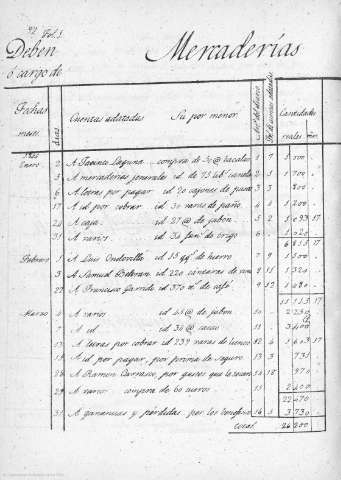 nº2 Fol. 1
Deben
ó cargo de Mercaderías
Fechas
meses dias Cuentas adatadas Su por menor Cantidades
reales mrs.
Enero 2 A Jacinto Laguna compra de 50 @ 1 7 1500
5 A mercaderías generales id. de 2 5 1700
6 A letras por pagar id. 20 cajones de 3 3 800
17 A id por cobrar id. 30 varas de paño 4 4 1200
24 A caja id. 27 @ de jabon 5 2 1093 17
31 A varios id. 34 fan.s de trigo 6 1020
Febrero 1 A Luis Ondovilla id. 15 qq.s de hierro 7 9 1500
3 A Samuel Beltran id. 220 cántaras de vino 8 11 1320
22 A Francisco Garrido id. 370 de café 9 12 1080
Marzo 4 A varios id. 45 @ de jabon 10 2250
7 A id. id. 34 @ cacao 11 3400
13 A letras por cobrar id. 239 varas de lienzo 12 4 1603 17
19 A id por pagar, por prima de seguro 13 3 731
28 A Ramon Carrasco, por gastos que 14 18 970
29 A varios compra de 60 cueros 15 2400
22470
31 A ganancias y pérdidas por los beneficios 16 5 3730
total 26200